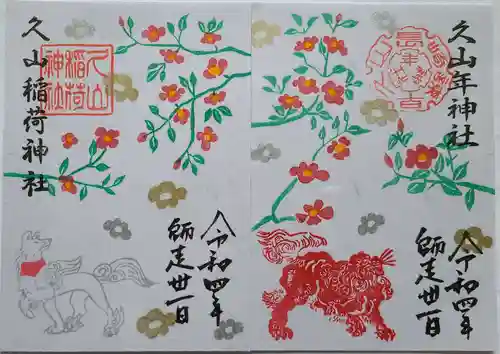 久山年神社
令和四年
師走丗一日
久山稲荷神社
久山
稲荷
神社
令和四年
師走丗一日